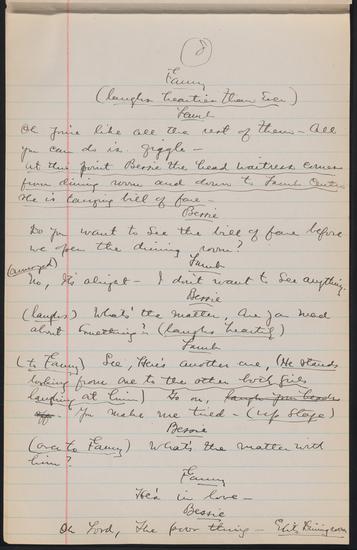 8
Fanny
(laughs heartier than Ever)
Lamb
Oh you're like all the rest of them - All
you can do is giggle -
at this point Bessie the head waitress comes
from dining room and down to Lamb Centre
She is carrying bill of fare -
Bessie
Do you want to see the bill of fare before
we open the dining room?
Lamb
(annoyed)
No, It's alright - I don't want to see anything.
Bessie
(laughs) What's the matter, Are you mad
about something? (laughs heartily)
Lamb
(to Fanny) See, Here's another one, (He stands
looking from one to the other both girls
laughing at him) Go on, laugh your heads
off - You make me tired - (up stage)
Bessie
(over to Fanny) What's the matter with
him?
Fanny
He's in love -
Bessie
Oh Lord, The poor thing - Exits Dining room